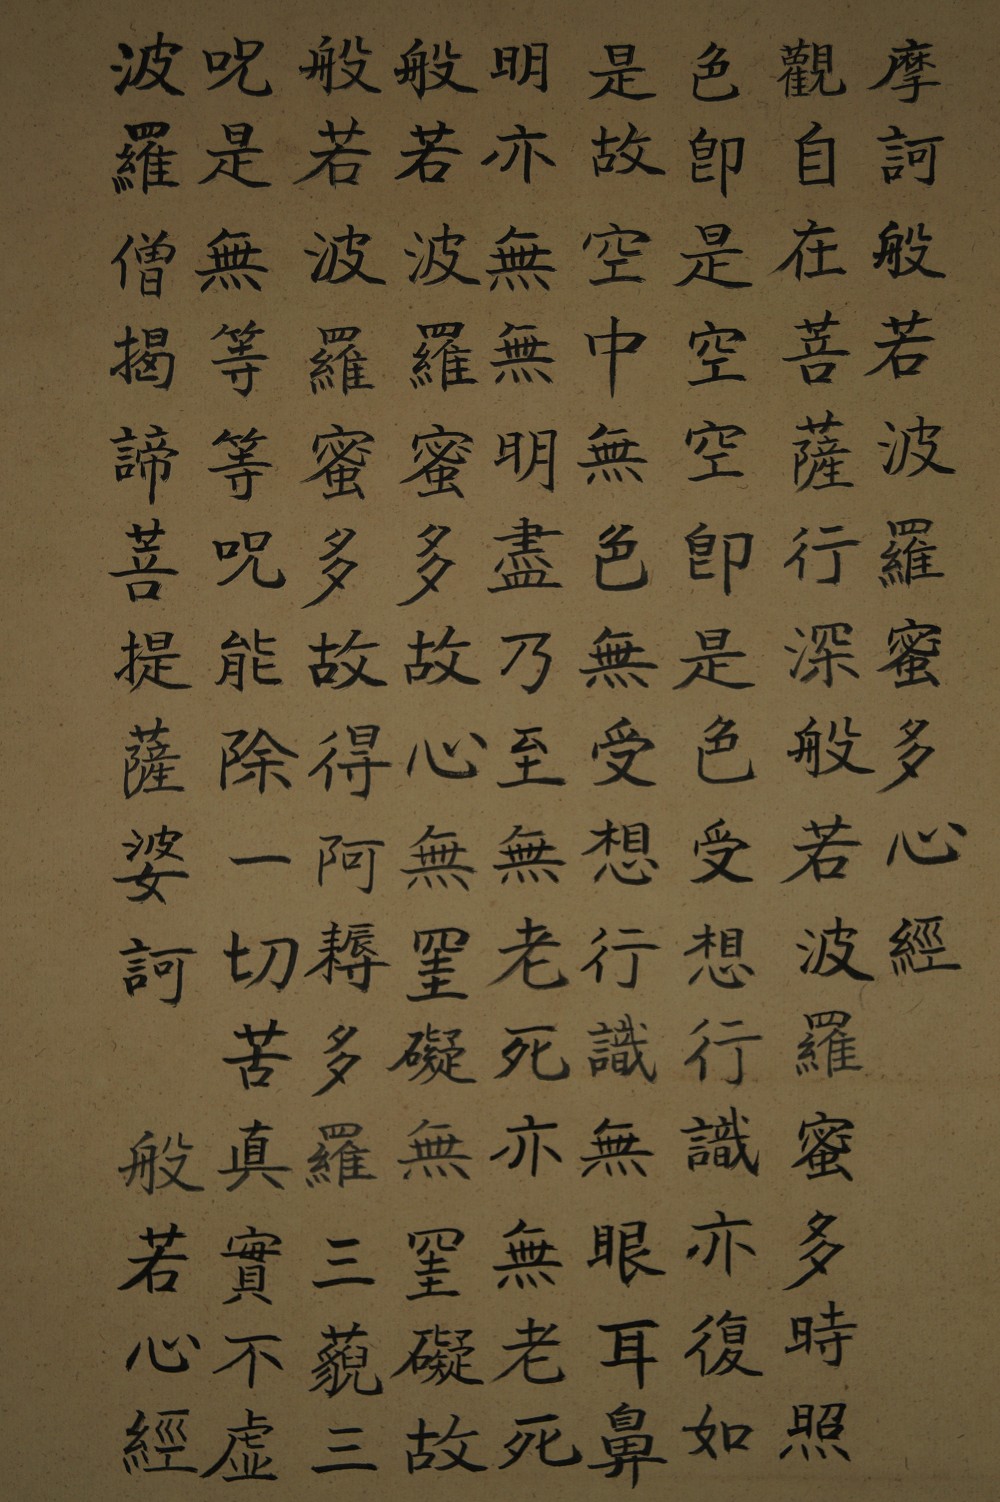 摩訶般若波羅蜜多心經
觀自在菩薩行深般若波羅蜜多時照
色卽是空空卽是色受想行識亦復如
是故空中無色無受想行識無眼耳鼻
明亦無無明盡乃至無老死亦無老死
般若波羅蜜多故心無罣礙無罣礙故
般若波羅蜜多故得阿耨多羅三藐三
呪是無等等呪能除一切苦真實不虛
波羅僧揭諦菩提薩婆訶 般若心經